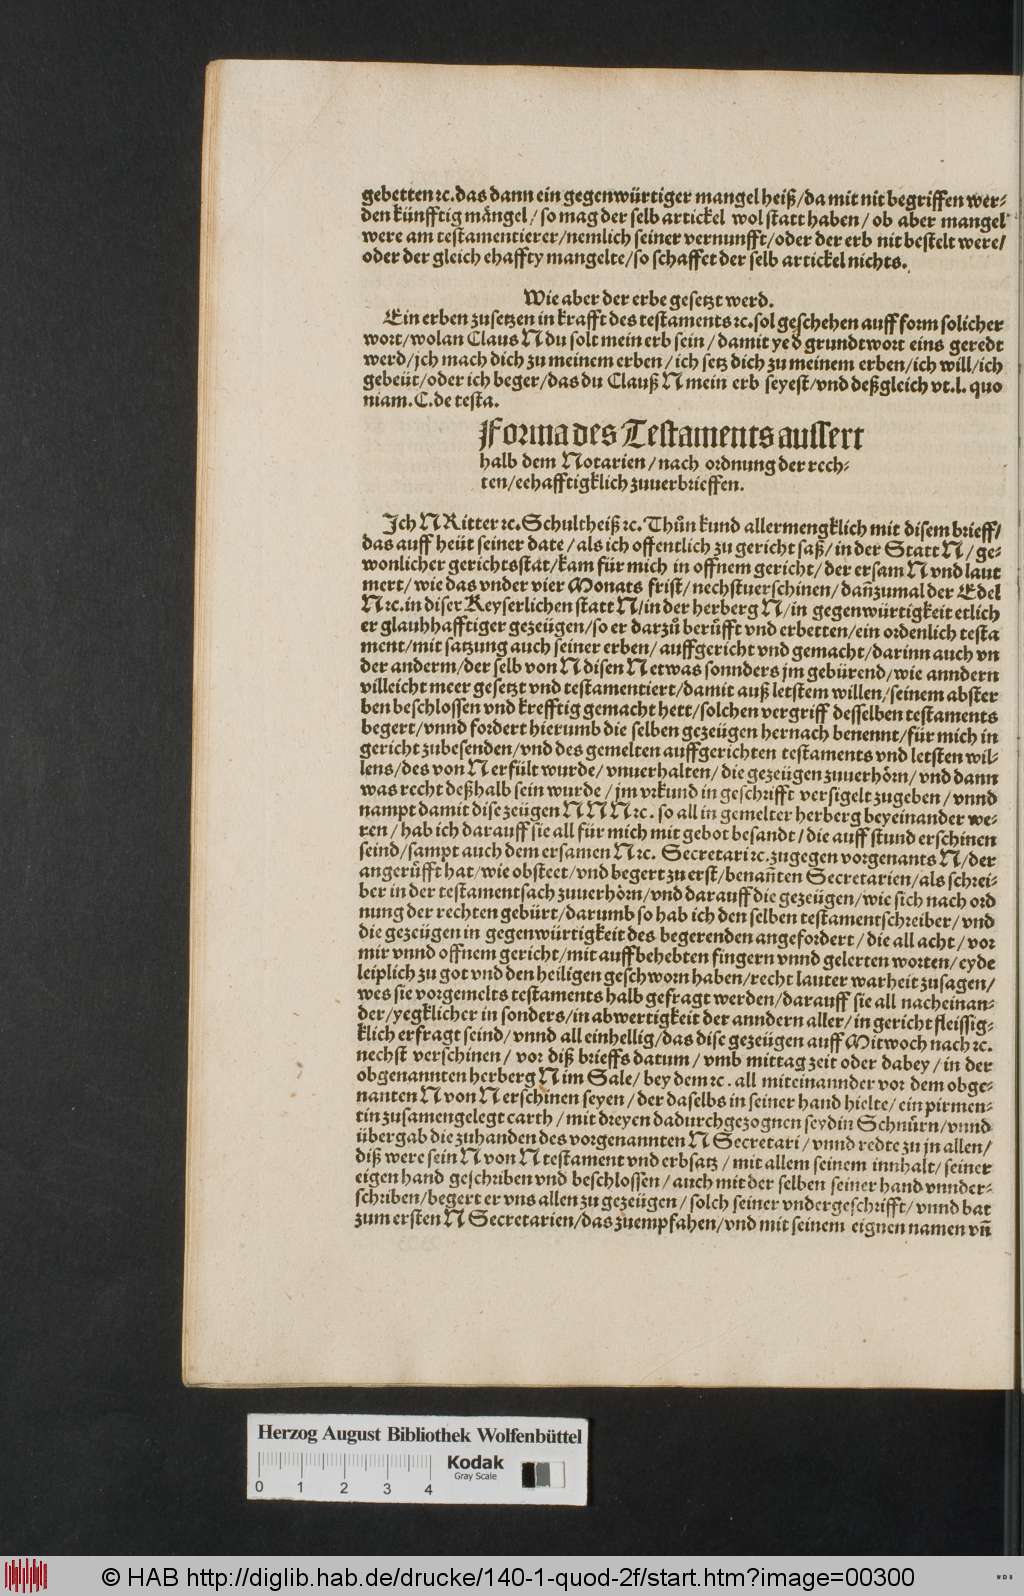 gebetten ꝛc. das dann ein gegenwürtiger mangel heiß/da mit nit begriffen wer⸗
den künfftig mängel/so mag der selb artickel wol statt haben/ob aber mangel
were am testamentierer/nemlich seiner vernunfft/oder der erb nit bestelt were/
oder der gleich ehaffty mangelte/so schaffet der selb artickel nichts.
Wie aber der erbe gesetzt werd.
Ein erben zusetzen in krafft des testaments ꝛc. sol geschehen auff form solicher
wort/wolan Claus N du solt mein erb sein/damit ye d̕ grundtwort eins geredt
werd/jch mach dich zu meinem erben/ich setz dich zu meinem erben/ich will/ich
gebeüt/oder ich beger/das du Clauß N mein erb seyest/vnd deßgleich vt.l. quo
niam. C. de testa.
Forma des Testaments aussert
halb dem Notarien/nach ordnung der rech⸗
ten/eehafftigklich zuuerbrieffen.
Ich N Ritter ꝛc. Schultheiß ꝛc. Thůn kund allermengklich mit disem brieff/
das auff heüt seiner date/als ich offentlich zu gericht saß/in der Statt N/ge⸗
wonlicher gerichtsstat/kam für mich in offnem gericht/der ersam N vnd laut
mert/wie das vnder vier Monats frist/nechstuerschinen/dañzumal der Edel
N ꝛc. in diser Keyserlichen statt N/in der herberg N/in gegenwürtigkeit etlich
er glauhhafftiger gezeügen/so er darzů berůfft vnd erbetten/ein ordenlich testa
ment/mit satzung auch seiner erben/auffgericht vnd gemacht/darinn auch vn
der anderm/der selb von N disen N etwas sonnders jm gebürend/wie anndern
villeicht meer gesetzt vnd testamentiert/damit auß letstem willen/seinem abster
ben beschlossen vnd krefftig gemacht hett/solchen vergriff desselben testaments
begert/vnnd fordert hierumb die selben gezeügen hernach benennt/für mich in
gericht zubesenden/vnd des gemelten auffgerichten testaments vnd letsten wil⸗
lens/des von N erfült wurde/vnuerhalten/die gezeügen zuuerhörn/vnd dann
was recht deßhalb sein wurde/jm vrkund in geschrifft versigelt zugeben/vnnd
nampt damit dise zeügen N N N ꝛc. so all in gemelter herberg beyeinander we⸗
ren/hab ich darauff sie all für mich mit gebot besandt/die auff stund erschinen
seind/sampt auch dem ersamen N ꝛc. Secretari ꝛc. zugegen vorgenants N/der
angerůfft hat/wie obsteet/vnd begert zu erst/benañten Secretarien/als schrei⸗
ber in der testamentsach zuuerhörn/vnd darauff die gezeügen/wie sich nach ord
nung der rechten gebürt/darumb so hab ich den selben testamentschreiber/vnd
die gezeügen in gegenwürtigkeit des begerenden angefordert/die all acht/vor
mir vnnd offnem gericht/mit auffbehebten fingern vnnd gelerten worten/eyde
leiplich zu got vnd den heiligen geschworn haben/recht lauter warheit zusagen/
wes sie vorgemelts testaments halb gefragt werden/darauff sie all nacheinan⸗
der/yegklicher in sonders/in abwertigkeit der anndern aller/in gericht fleissig⸗
klich erfragt seind/vnnd all einhellig/das dise gezeügen auff Mitwoch nach ꝛc.
nechst verschinen/vor diß brieffs datum/vmb mittag zeit oder dabey/in der
obgenannten herberg N im Sale/bey dem ꝛc. all miteinannder vor dem obge⸗
nanten N von N erschinen seyen/der daselbs in seiner hand hielte/ein pirmen⸗
tin zusamengelegt carth/mit dreyen dadurchgezognen seydin Schnürn/vnnd
übergab die zuhanden des vorgenannten N Secretari/vnnd redte zu jn allen/
diß were sein N von N testament vnd erbsatz/mit allem seinem innhalt/seiner
eigen hand geschriben vnd beschlossen/auch mit der selben seiner hand vnnder⸗
schriben/begert er vns allen zu gezeügen/solch seiner vndergeschrifft/vnnd bat
zum ersten N Secretarien/das zuempfahen/vnd mit seinem eignen namen vñ
Herzog August Bibliothek Wolfenbüttel
Kodak
Gray Scale
0 1 2 3 4
© HAB http://diglib.hab.de/drucke/140-1-quod-2f/start.htm?image=00300